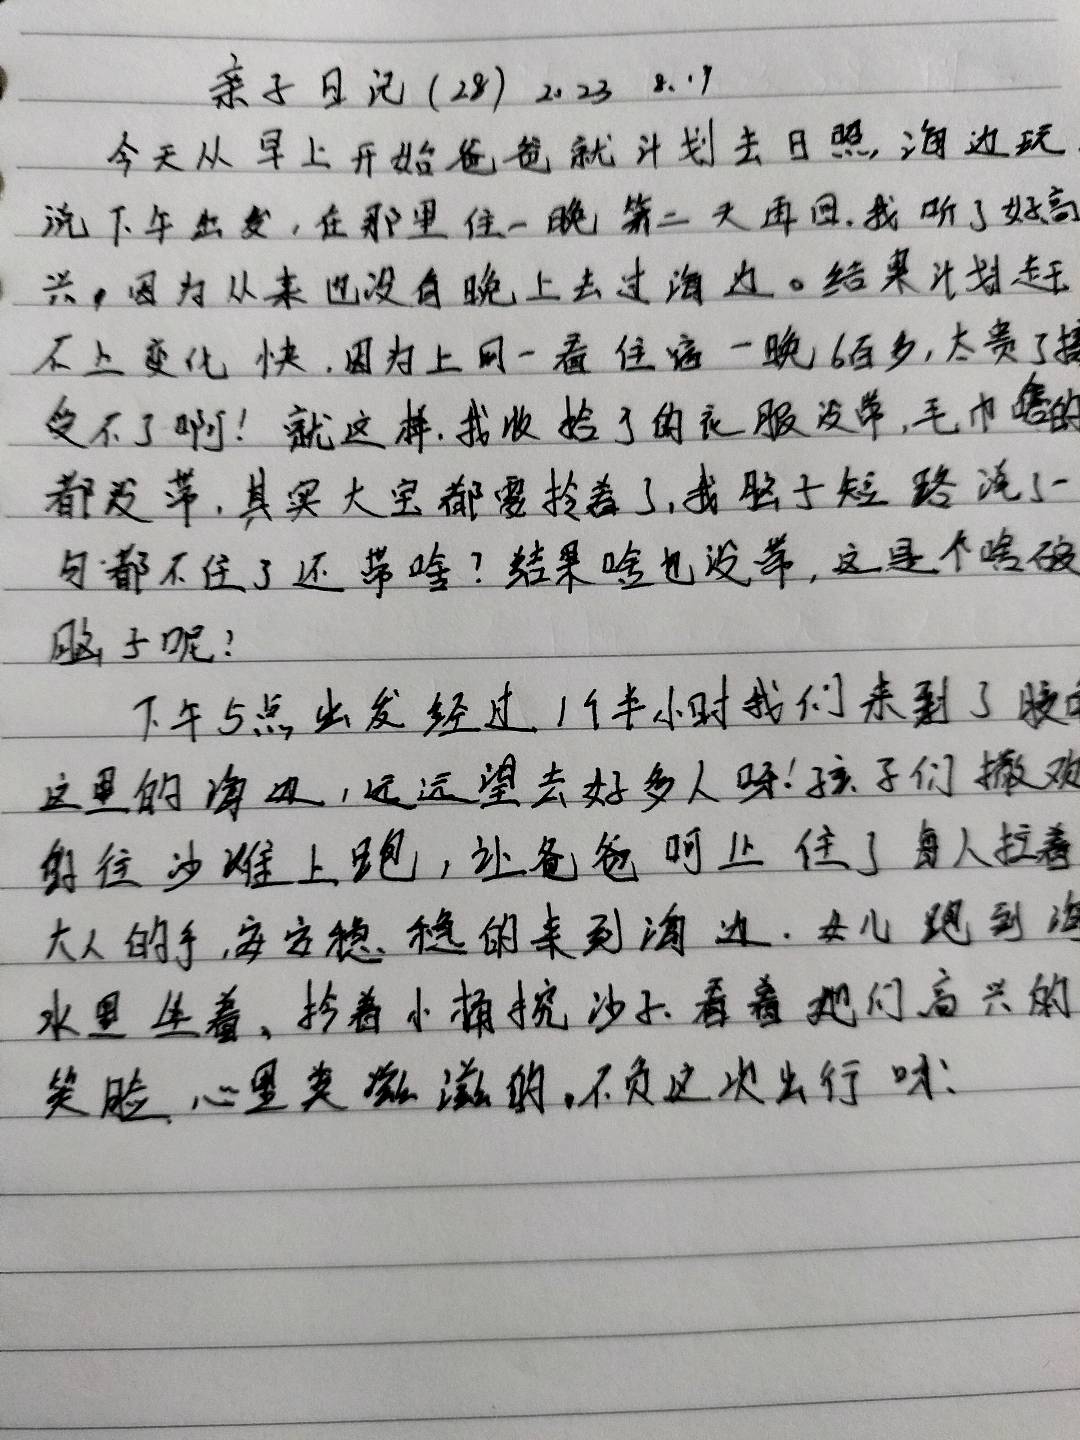 亲子日记(28) 2023 8.19
今天从早上开始爸爸就计划去日照海边玩,
说下午出发,在那里住一晚第二天再回.我听了好高
兴,因为从来也没有晚上去过海边。结果计划赶
不上变化快.因为上网一看住宿一晚6百多,太贵了接
受不了啊!就这样.我收拾了的衣服没带,毛巾啥的
都没带,其实大宝都要拎着了,我脑子短路说了一
句都不住了还带啥?结果啥也没带,这是个啥破
脑子呢?
下午5点出发经过1个半小时我们来到了胶南
这里的海边,远远望去好多人呀!孩子们撒欢
的往沙滩上跑,让爸爸呵止住了每人拉着
大人的手,安安稳稳的来到海边.女儿跑到海
水里坐着、拎着小桶挖沙子.看着她们高兴的
笑脸,心里美滋滋的.不负这次出行呀: